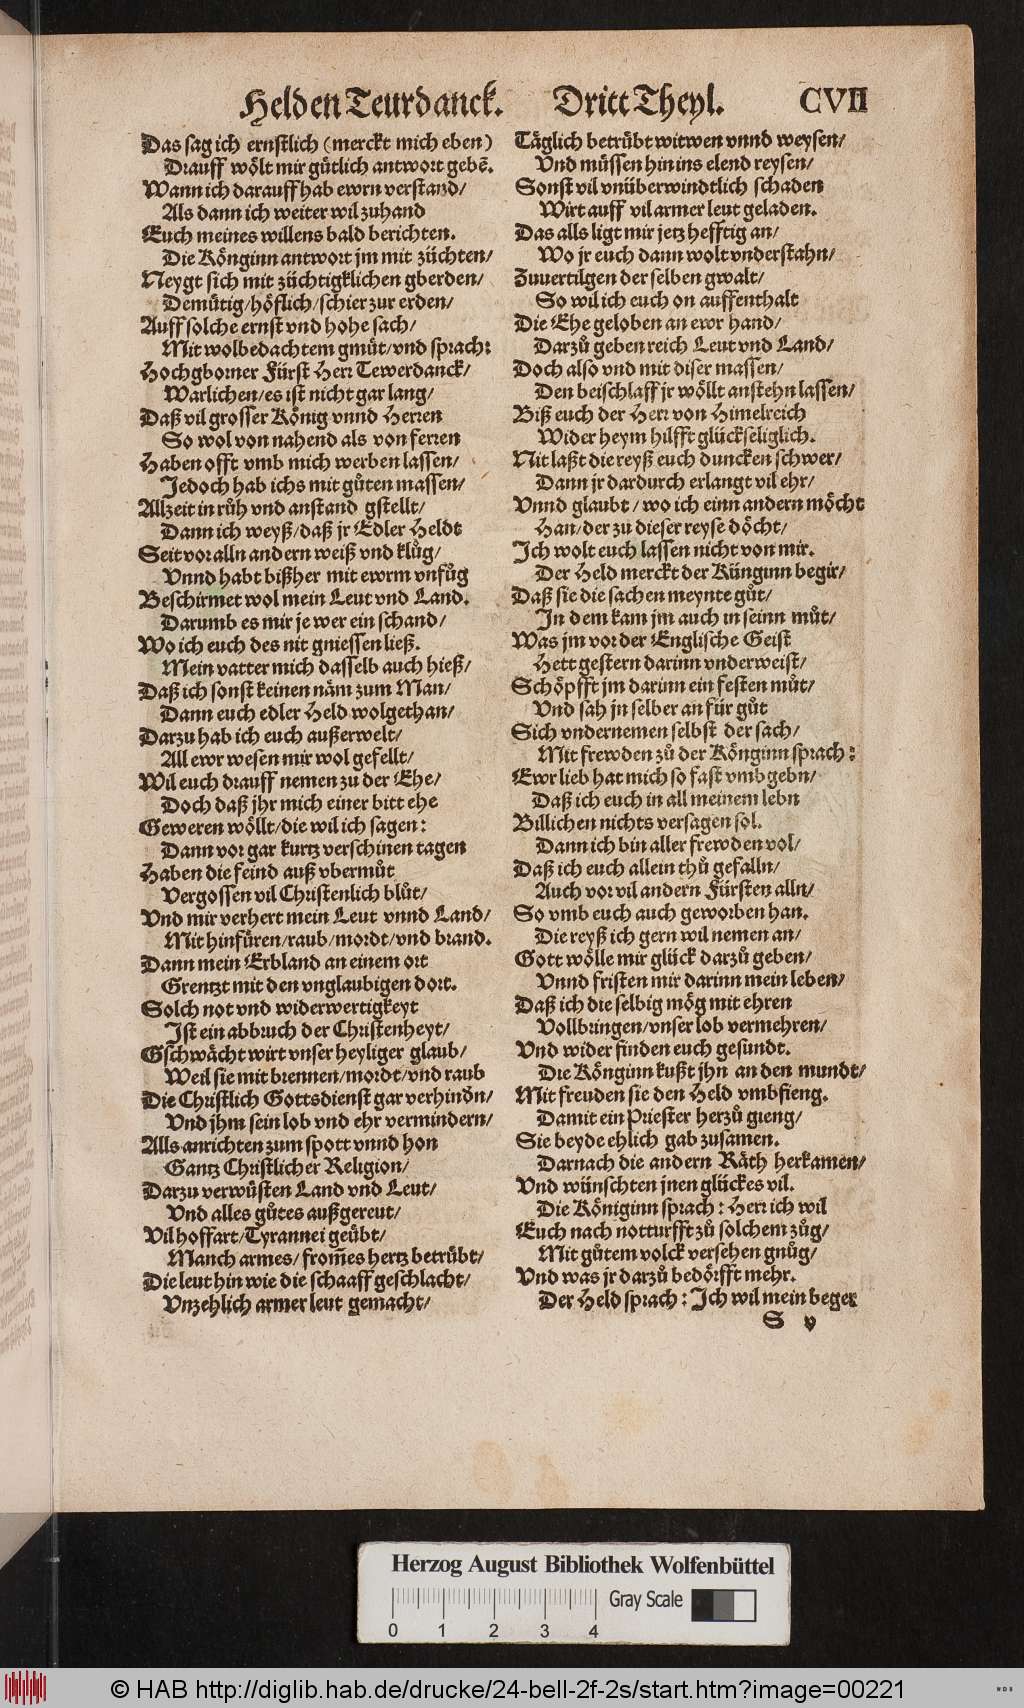 Helden Teurdanck. Dritt Theyl. CVII
Das sag ich ernstlich (merckt mich eben)
Drauff wölt mir gůtlich antwort gebē.
Wann ich darauff hab ewrn verstand/
Als dann ich weiter wil zuhand
Euch meines willens bald berichten.
Die Könginn antwort jm mit züchten/
Neygt sich mit züchtigklichen gberden/
Demütig/höflich/schier zur erden/
Auff solche ernst vnd hohe sach/
Mit wolbedachtem gmüt/vnd sprach:
Hochgborner Fürst Herr Tewerdanck/
Warlichen/es ist nicht gar lang/
Daß vil grosser König vnnd Herren
So wol von nahend als von ferren
Haben offt vmb mich werben lassen/
Jedoch hab ichs mit gůten massen/
Allzeit in růh vnd anstand gstellt/
Dann ich weyß/daß jr Edler Heldt
Seit vor alln andern weiß vnd klůg/
Vnnd habt bißher mit ewrm vnfůg
Beschirmet wol mein Leut vnd Land.
Darumb es mir je wer ein schand/
Wo ich euch des nit gniessen ließ.
Mein vatter mich dasselb auch hieß/
Daß ich sonst keinen näm zum Man/
Dann euch edler Held wolgethan/
Darzu hab ich euch außerwelt/
All ewr wesen mir wol gefellt/
Wil euch drauff nemen zu der Ehe/
Doch daß jhr mich einer bitt ehe
Geweren wöllt/die wil ich sagen:
Dann vor gar kurtz verschinen tagen
Haben die feind auß vbermůt
Vergossen vil Christenlich blůt/
Vnd mir verhert mein Leut vnnd Land/
Mit hinfüren/raub/mordt/vnd brand.
Dann mein Erbland an einem ort
Grentzt mit den vnglaubigen dort.
Solch not vnd widerwertigkeyt
Ist ein abbruch der Christenheyt/
Gschwächt wirt vnser heyliger glaub/
Weil sie mit brennen/mordt/vnd raub
Die Christlich Gottsdienst gar verhindn/
Vnd jhm sein lob vnd ehr vermindern/
Alls anrichten zum spott vnnd hon
Gantz Christlicher Religion/
Darzu verwüsten Land vnd Leut/
Vnd alles gůtes außgereut/
Vil hoffart/Tyrannei geübt/
Manch armes/from̄es hertz betrübt/
Die leut hin wie die schaaff geschlacht/
Vnzehlich armer leut gemacht/
Täglich betrübt witwen vnnd weysen/
Vnd müssen hin ins elend reysen/
Sonst vil vnüberwindtlich schaden
Wirt auff vil armer leut geladen.
Das alls ligt mir jetz hefftig an/
Wo jr euch dann wolt vnderstahn/
Zuuertilgen derselben gwalt/
So wil ich euch on auffenthalt
Die Ehe geloben an ewr hand/
Darzů geben reich Leut vnd Land/
Doch also vnd mit diser massen/
Den beischlaff jr wöllt anstehn lassen/
Biß euch der Herr von Himelreich
Wider heym hilfft glückseliglich.
Nit laßt die reyß euch duncken schwer/
Dann jr dardurch erlangt vil ehr/
Vnnd glaubt/wo ich einn andern möcht
Han/der zu dieser reyse döcht/
Ich wolt euch lassen nicht von mir.
Der Held merckt der Künginn begir/
Daß sie die sachen meynte gůt/
In dem kam jm auch in seinn můt/
Was jm vor der Englische Geist
Hett gestern darinn vnderweist/
Schöpfft jm darinn ein festen můt/
Vnd sah jn selber an für gůt
Sich vndernemen selbst der sach/
Mit frewden zů der Könginn sprach:
Ewr lieb hat mich so fast vmbgebn/
Daß ich euch in all meinem lebn
Billichen nichts versagen sol.
Dann ich bin aller frewden vol/
Daß ich euch allein thů gefalln/
Auch vor vil andern Fürsten alln/
So vmb euch auch geworben han.
Die reyß ich gern wil nemen an/
Gott wölle mir glück darzů geben/
Vnnd fristen mir darinn mein leben/
Daß ich die selbig mög mit ehren
Vollbringen/vnser lob vermehren/
Vnd wider finden euch gesundt.
Die Könginn kußt jhn an den mundt/
Mit freuden sie den Held vmbfieng.
Damit ein Priester herzů gieng/
Sie beyde ehlich gab zusamen.
Darnach die andern Räth herkamen/
Vnd wünschten jnen glückes vil.
Die Königinn sprach: Herr ich wil
Euch nach notturfft zů solchem zůg/
Mit gůtem volck versehen gnůg/
Vnd was jr darzů bedörfft mehr.
Der Held sprach: Ich wil mein beger
S v
Herzog August Bibliothek Wolfenbüttel
Gray Scale
0 1 2 3 4
© HAB http://diglib.hab.de/drucke/24-bell-2f-2s/start.htm?image=00221